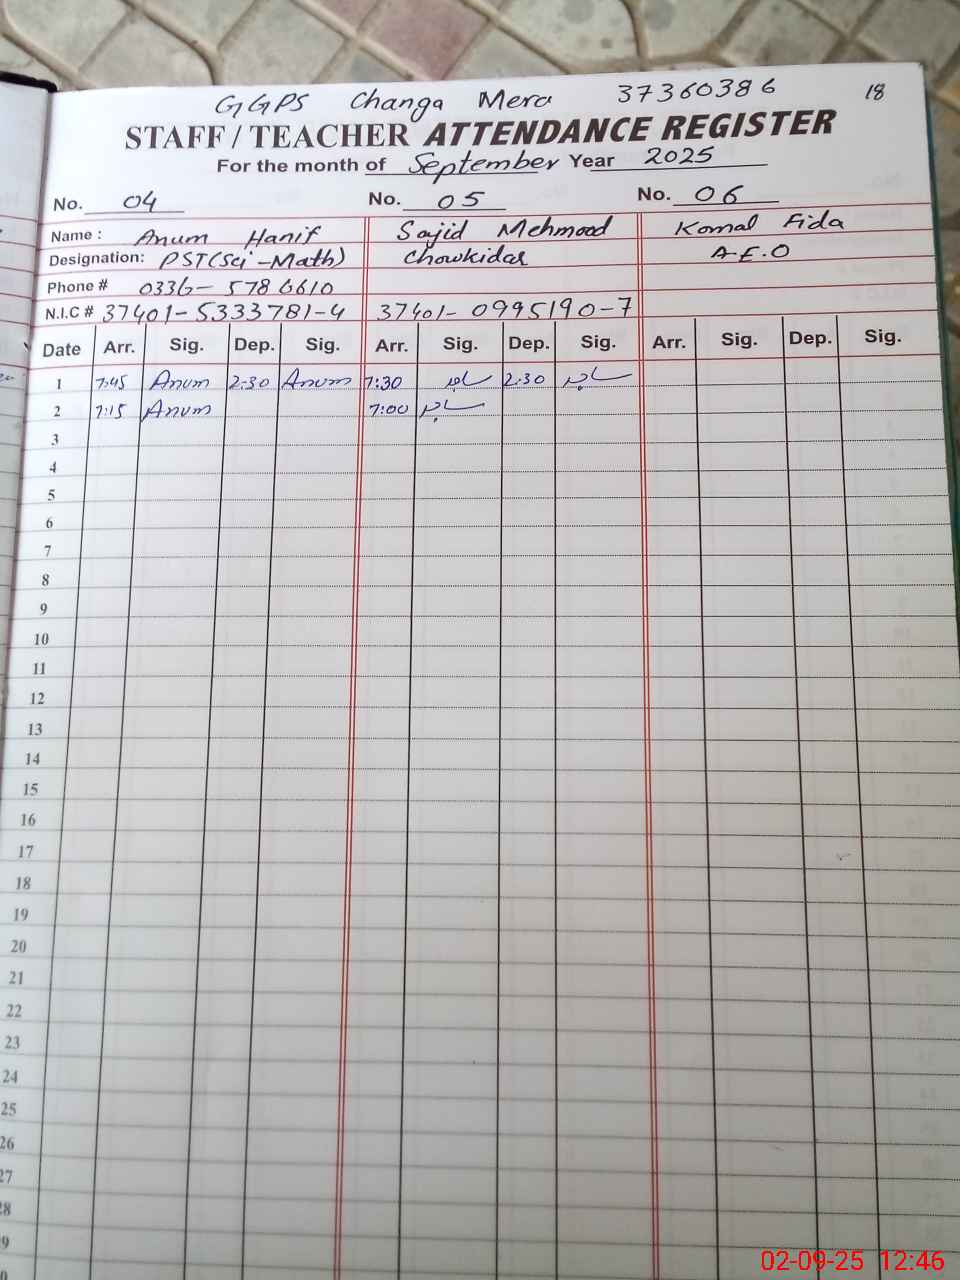 GGPS Changa Mera 37360386 18
STAFF / TEACHER ATTENDANCE REGISTER
For the month of September Year 2025
No. 04 No. 05 No. 06
Name : Anum Hanif Sajid Mehmood Komal Fida
Designation: PST(Sci-Math) Chowkidar A.E.O
Phone # 0336-5786610
N.I.C # 37401-5333781-4 37401-0995190-7
Date Arr. Sig. Dep. Sig. Arr. Sig. Dep. Sig. Arr. Sig. Dep. Sig.
1 7:45 Anum 2:30 Anum 7:30 ساجد 2:30 ساجد
2 7:15 Anum 7:00 ساجد
3
4
5
6
7
8
9
10
11
12
13
14
15
16
17
18
19
20
21
22
23
24
25
26
27
28
9
0
02-09-25 12:46